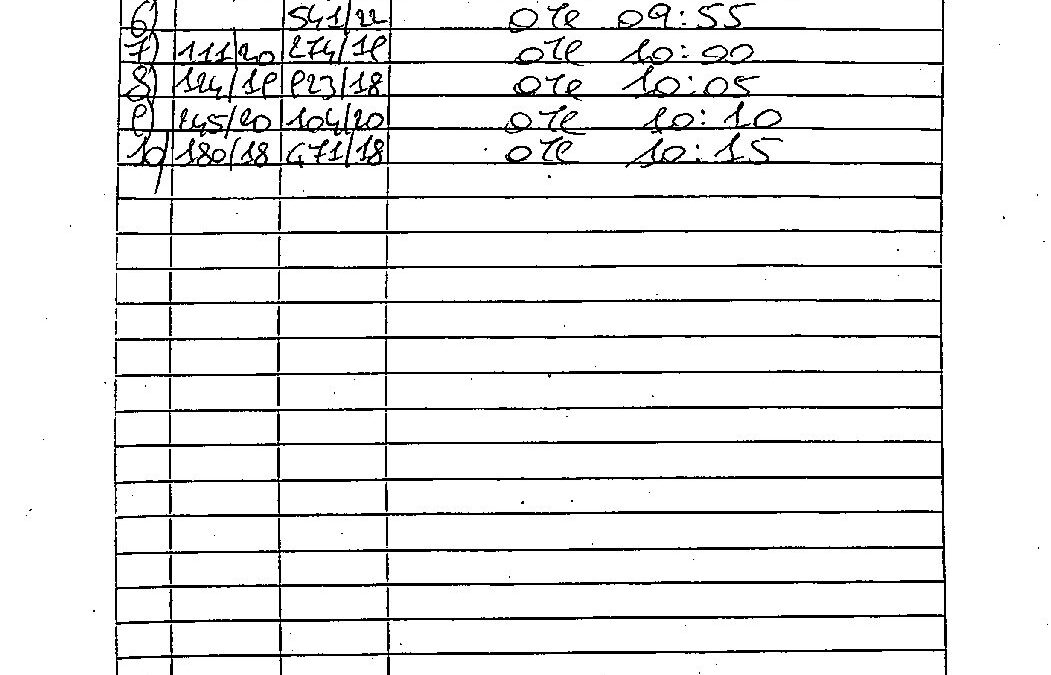 6) 541/22 ore 09:55
7) 111/20 274/19 ore 10:00
8) 124/19 923/18 ore 10:05
9) 245/20 104/20 ore 10:10
10) 180/18 471/18 ore 10:15